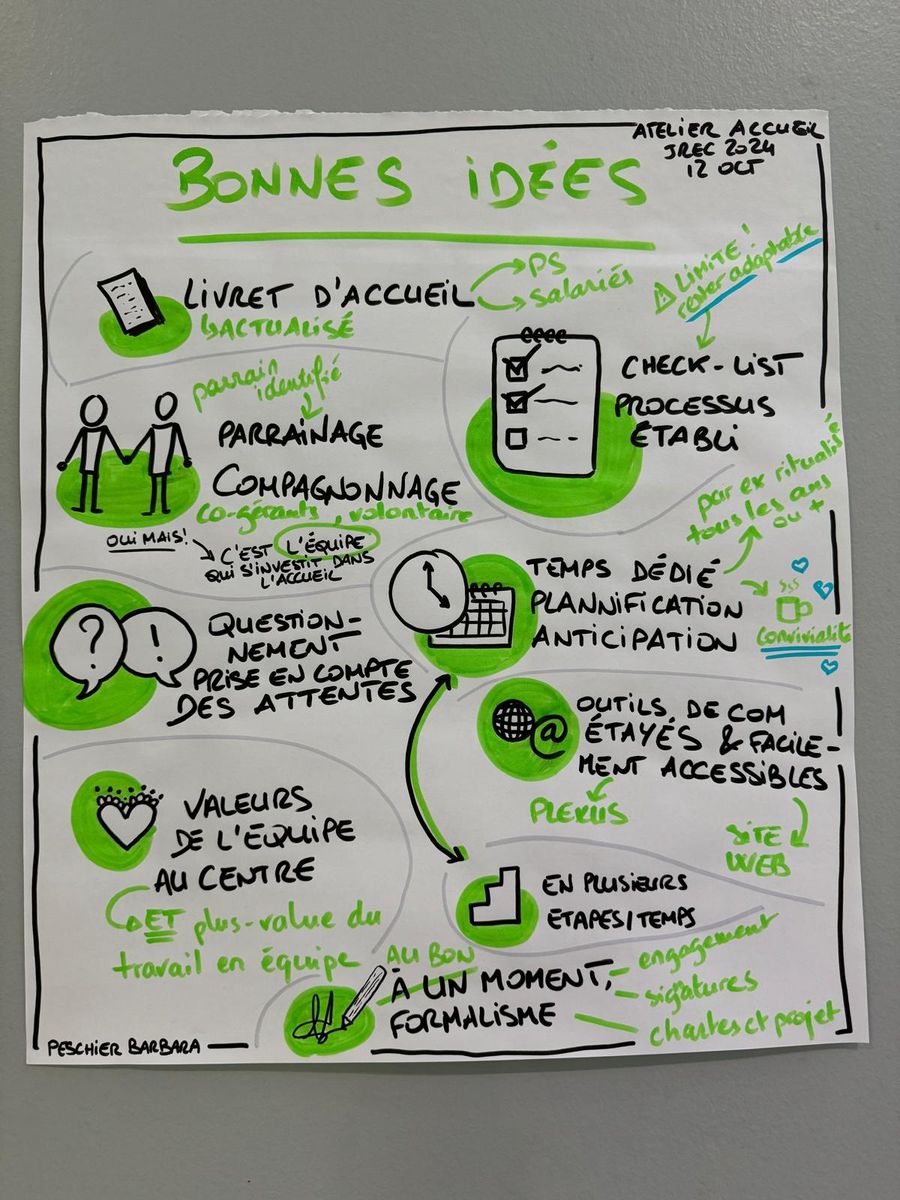 ATELIER ACCUEIL
JREC 2024
12 OCT
BONNES IDÉES
LIVRET D'ACCUEIL
PS
salariés
ACTUALISÉ
LIMITE!
rester adaptable
CHECK-LIST
PROCESSUS
ÉTABLI
parrain
identifié
PARRAINAGE
COMPAGNONNAGE
co-gérants, volontaire
OUI MAIS!
C'EST L'ÉQUIPE
QUI S'INVESTIT DANS
L'ACCUEIL
TEMPS DÉDIÉ
PLANNIFICATION
ANTICIPATION
par ex ritualisé
tous les ans
ou +
convivialité
?
!
QUESTION-
NEMENT
PRISE EN COMPTE
DES ATTENTES
@
OUTILS DE COM
ÉTAYÉS & FACILE-
MENT ACCESSIBLES
PLEXUS
SITE
WEB
VALEURS
DE L'ÉQUIPE
AU CENTRE
ET plus-value du
travail en équipe
EN PLUSIEURS
ETAPES/TEMPS
AU BON
À UN MOMENT,
FORMALISME
- engagement
- signatures
chartes et projet
PESCHIER BARBARA